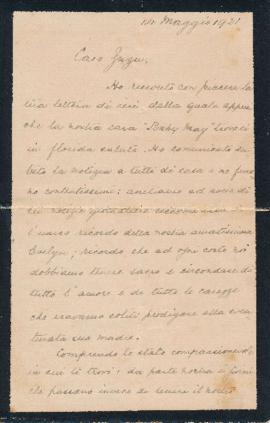 Maggio 1921
Caro Zuzu,
Ho ricevuto con piacere la
tua lettera di ieri dalla quale appren
che la nostra cara "Baby May" trovasi
in florida salute. Ho comunicato su
bito la notizia a tutti di casa e ne furo
no contentissimi: anch'essi
di
l'unico ricordo della nostra amatissima
Evelyn; ricordo che ad ogni costo noi
dobbiamo tenere sacro e circondare di
tutto l'amore e di tutte le carezze
che eravamo soliti prodigare alla sven
turata sua madre.
Comprendo lo stato compassionevole
in cui ti trovi: da parte nostra i giorni
che passano invece di lenire il nostro